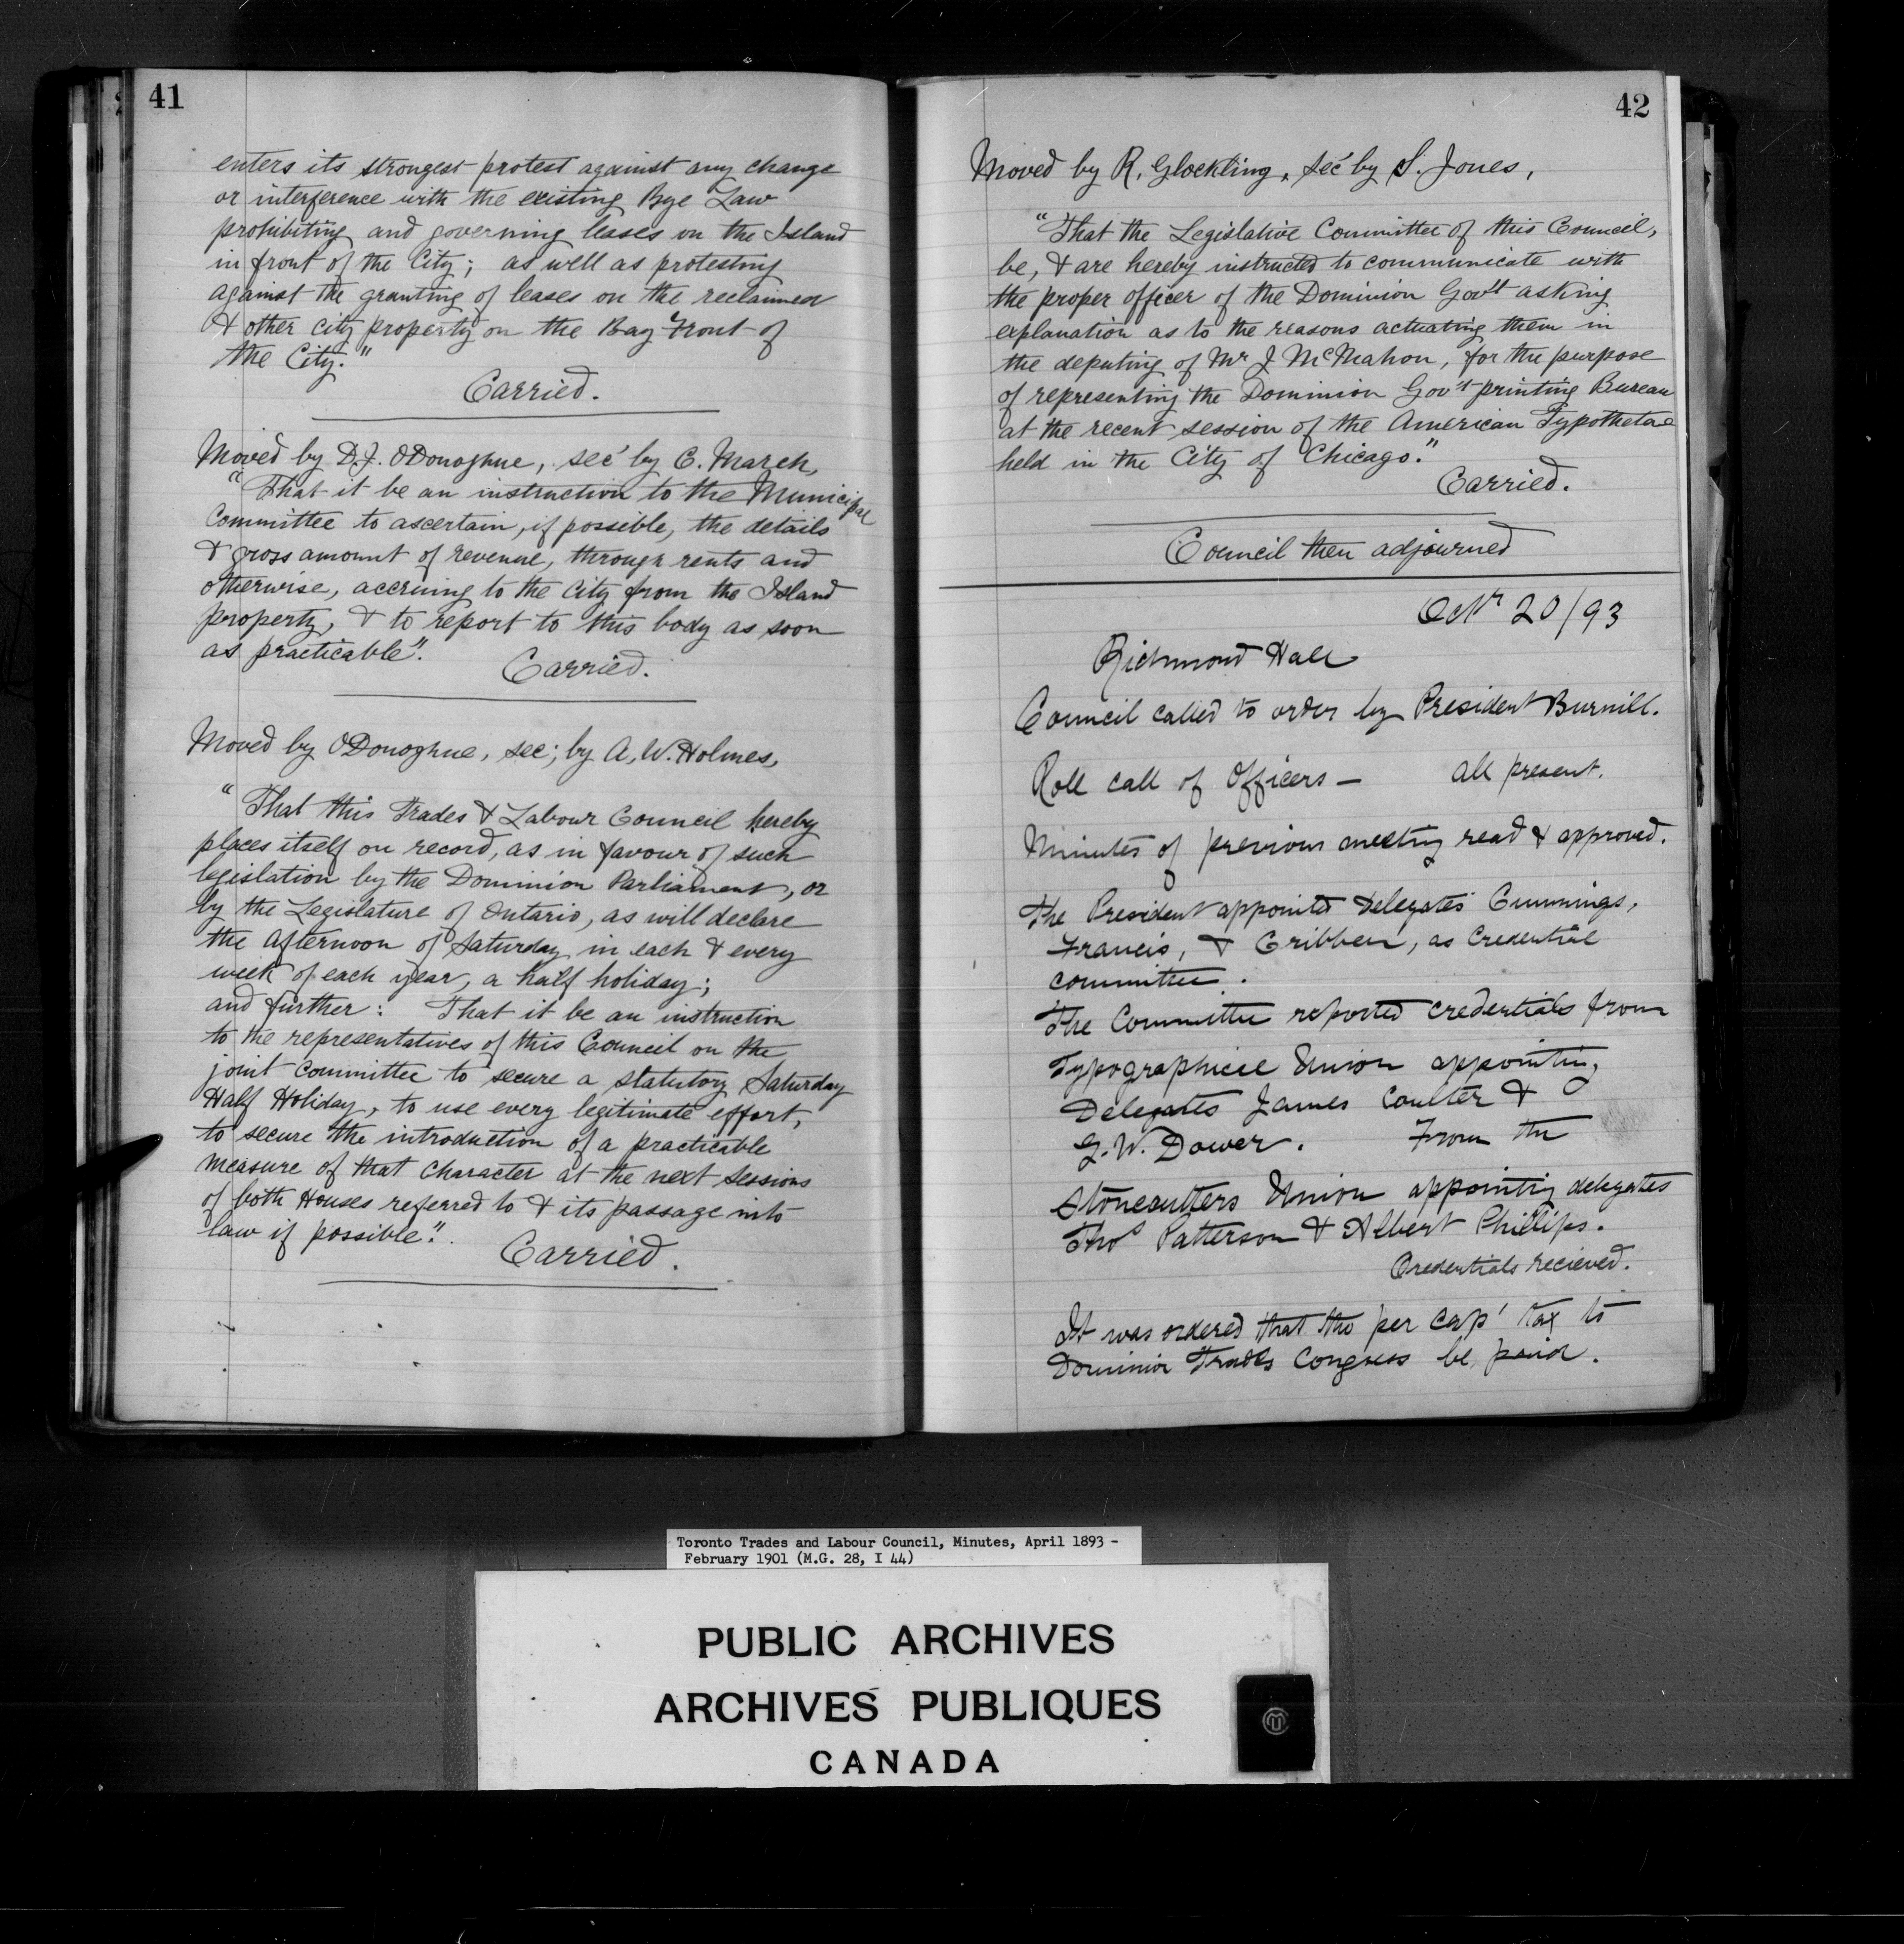 41
enters its strongest protest against any change
or interference with the existing Bye Law
prohibiting and governing leases on the Island
in front of the City; as well as protesting
against the granting of leases on the reclaimed
& other city property on the Bay Front of
the City."
Carried.
Moved by D.J. O'Donoghue, sec' by C. March,
"That it be an instruction to the Municipal
Committee to ascertain, if possible, the details
& gross amount of revenue, through rents and
otherwise, accruing to the City from the Island
property, & to report to this body as soon
as practicable".
Carried.
Moved by O'Donoghue, sec; by A. W. Holmes,
"That this Trades & Labour Council hereby
places itself on record, as in favour of such
legislation by the Dominion Parliament, or
by the Legislature of Ontario, as will declare
the afternoon of Saturday in each & every
week of each year, a half holiday;
and further: That it be an instruction
to the representatives of this Council on the
joint committee to secure a statutory Saturday
Half Holiday, to use every legitimate effort,
to secure the introduction of a practicable
measure of that character at the next sessions
of both Houses referred to & its passage into
law if possible".
Carried.
42
Moved by R. Glockling, sec' by S. Jones,
"That the Legislative Committee of this Council,
be, & are hereby instructed to communicate with
the proper officer of the Dominion Gov't asking
explanation as to the reasons actuating them in
the deputing of Mr J McMahon, for the purpose
of representing the Dominion Gov't printing Bureau
at the recent session of the American Typothetae
held in the City of Chicago."
Carried.
Council then adjourned
Octr 20/93
Richmond Hall
Council called to order by President Burnill.
Roll call of Officers — all present.
Minutes of previous meeting read & approved.
The President appointed Delegates Cummings,
Francis, & Gribben, as Credential
committee.
The Committee reported credentials from
Typographical Union appointing
Delegates James Coulter &
G. W. Dower. From the
Stonecutters Union appointing delegates
Thos Patterson & Albert Phillips.
Credentials recieved.
It was ordered that the per cap' tax to
Dominion Trades Congress be paid.
Toronto Trades and Labour Council, Minutes, April 1893 -
February 1901 (M.G. 28, I 44)
PUBLIC ARCHIVES
ARCHIVES PUBLIQUES
CANADA